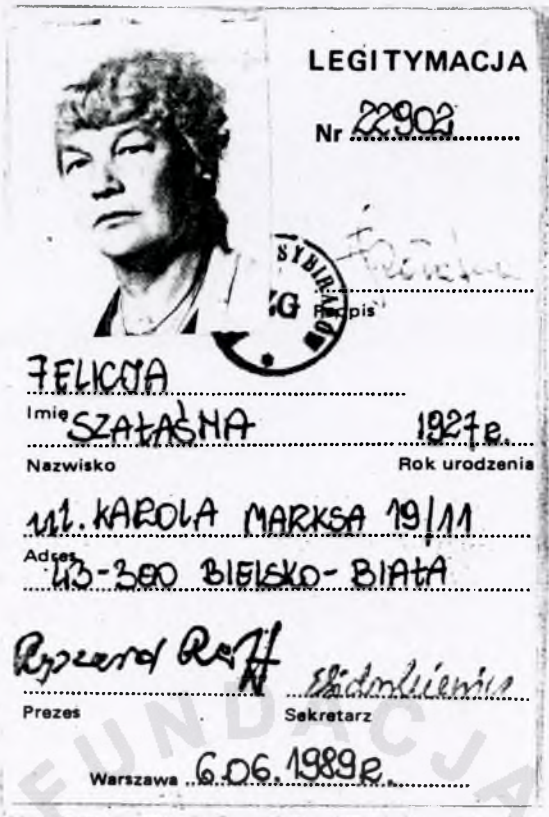 LEGITYMACJA
Nr 22902
SYBIRAKÓW
ZG
Podpis
FELICJA
Imię
SZAŁAŚNA 1927 r.
Nazwisko Rok urodzenia
ul. KAROLA MARKSA 19/11
Adres
43-300 BIELSKO-BIAŁA
Ryszard Reiff
Prezes Sekretarz
Warszawa 6.06.1989 R.
FUNDACJA